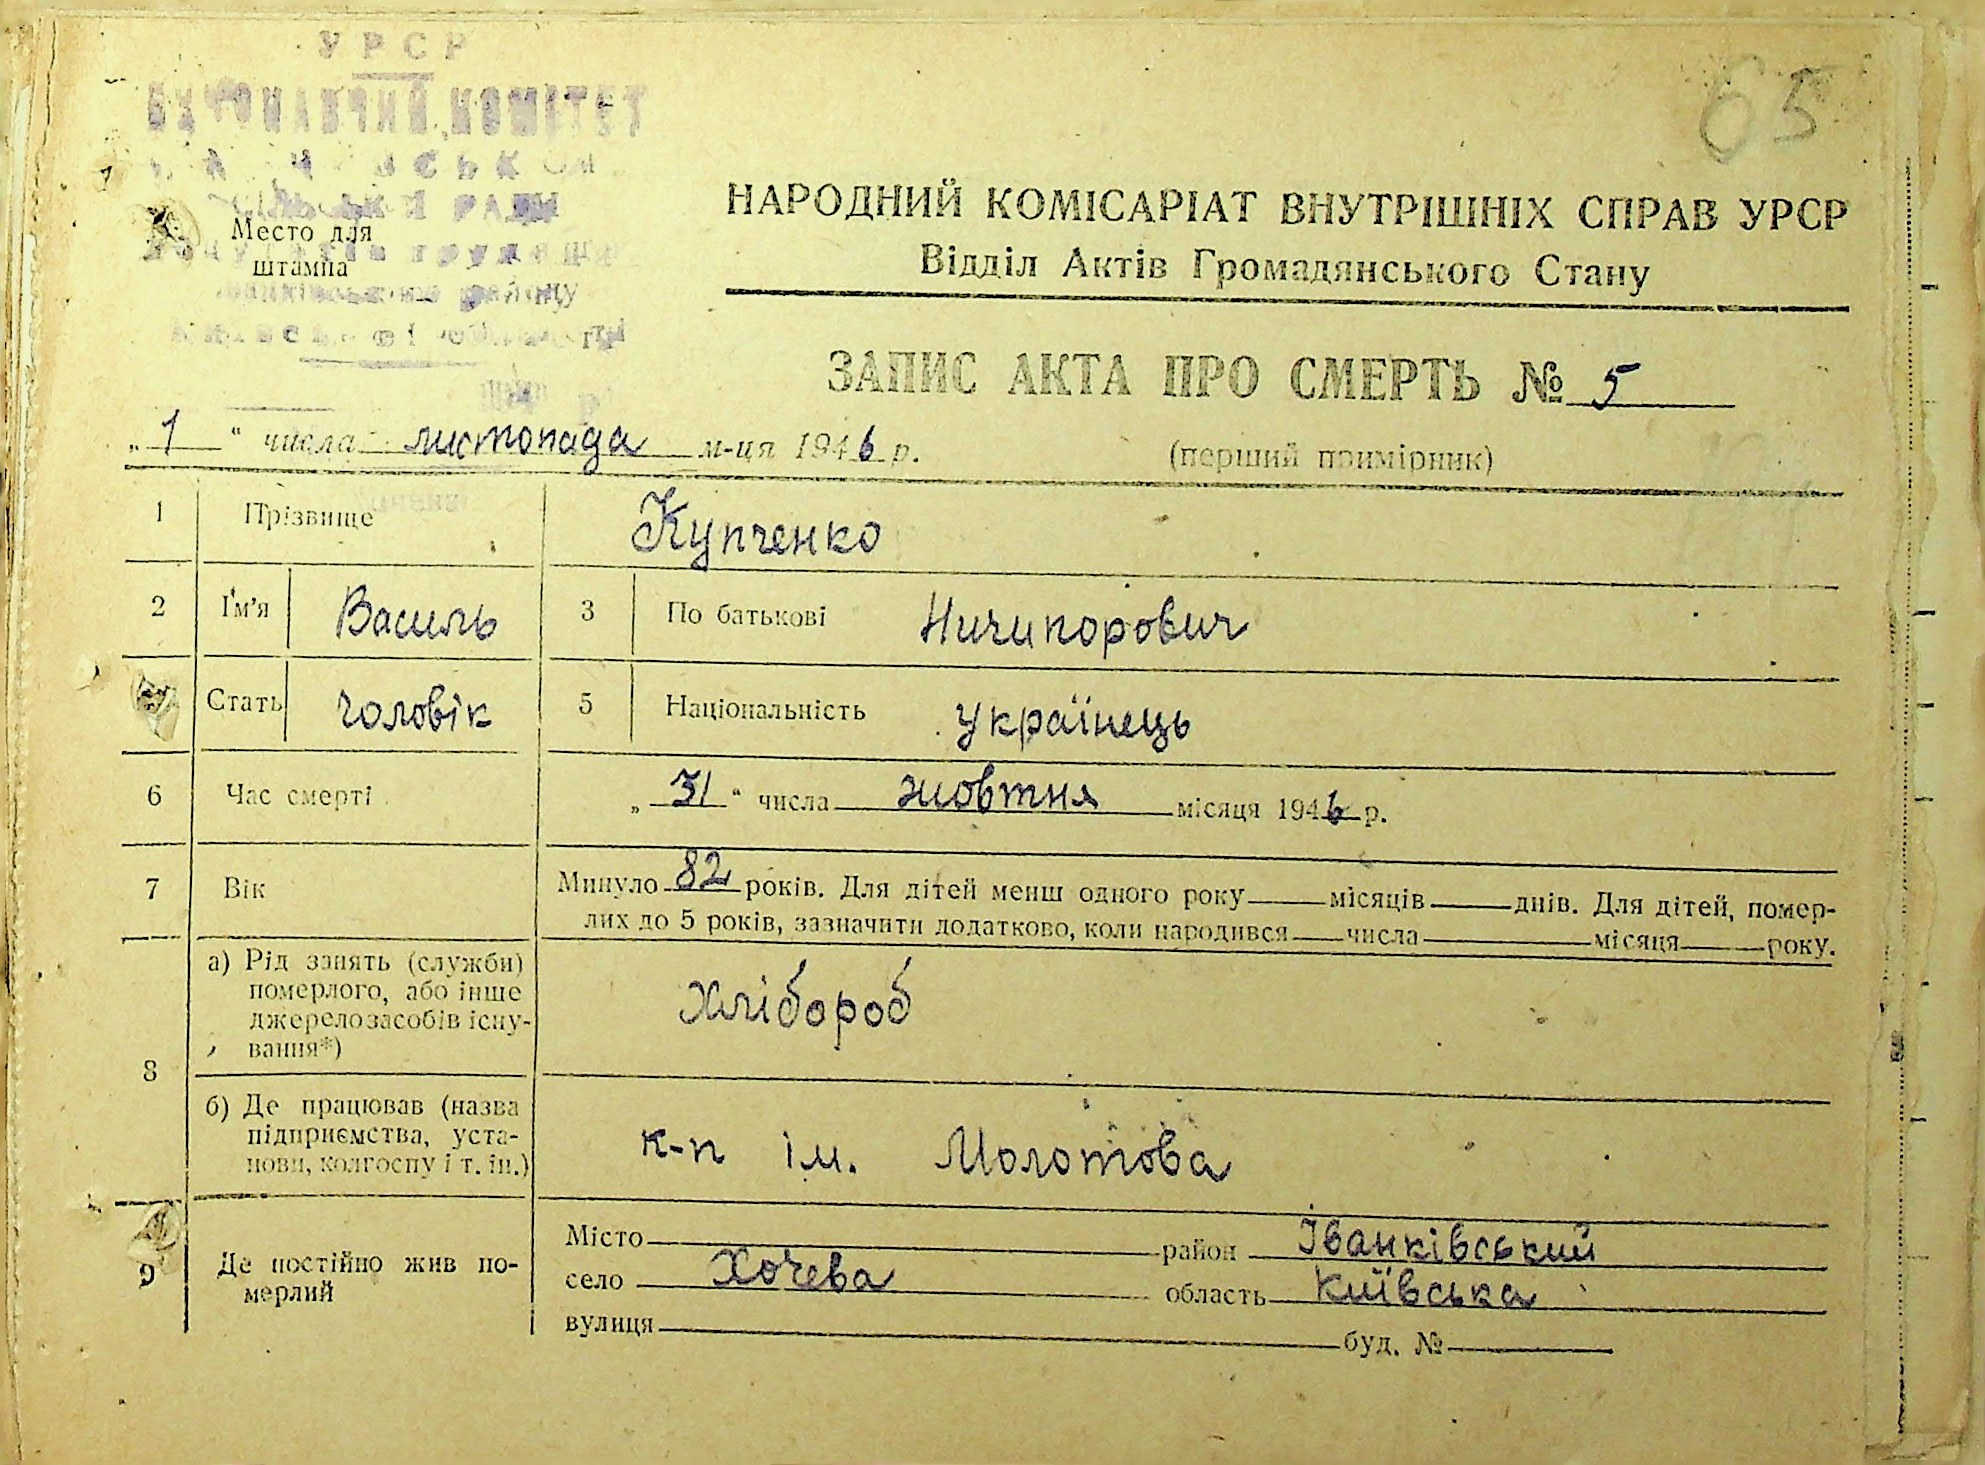 УРСР
ВИКОНАВЧИЙ КОМІТЕТ
РАДИ
району
65
Место для
штампа
НАРОДНИЙ КОМІСАРІАТ ВНУТРІШНІХ СПРАВ УРСР
Відділ Актів Громадянського Стану
ЗАПИС АКТА ПРО СМЕРТЬ № 5
„ 1 “ числа листопада м-ця 1946 р.
(перший примірник)
1 Прізвище Купченко
2 Ім'я Василь 3 По батькові Ничипорович
Стать чоловік 5 Національність українець
6 Час смерті „ 31 “ числа жовтня місяця 1946 р.
7 Вік Минуло 82 років. Для дітей менш одного року місяців днів. Для дітей, помер-
лих до 5 років, зазначити додатково, коли народився числа місяця року.
8
а) Рід занять (служби)
померлого, або інше
джерело засобів існу-
вання*)
хлібороб
б) Де працював (назва
підприємства, уста-
нови, колгоспу і т. ін.)
к-п ім. Молотова
9 Де постійно жив по-
мерлий
Місто район Іванківський
село Хочева область Київська
вулиця буд. №